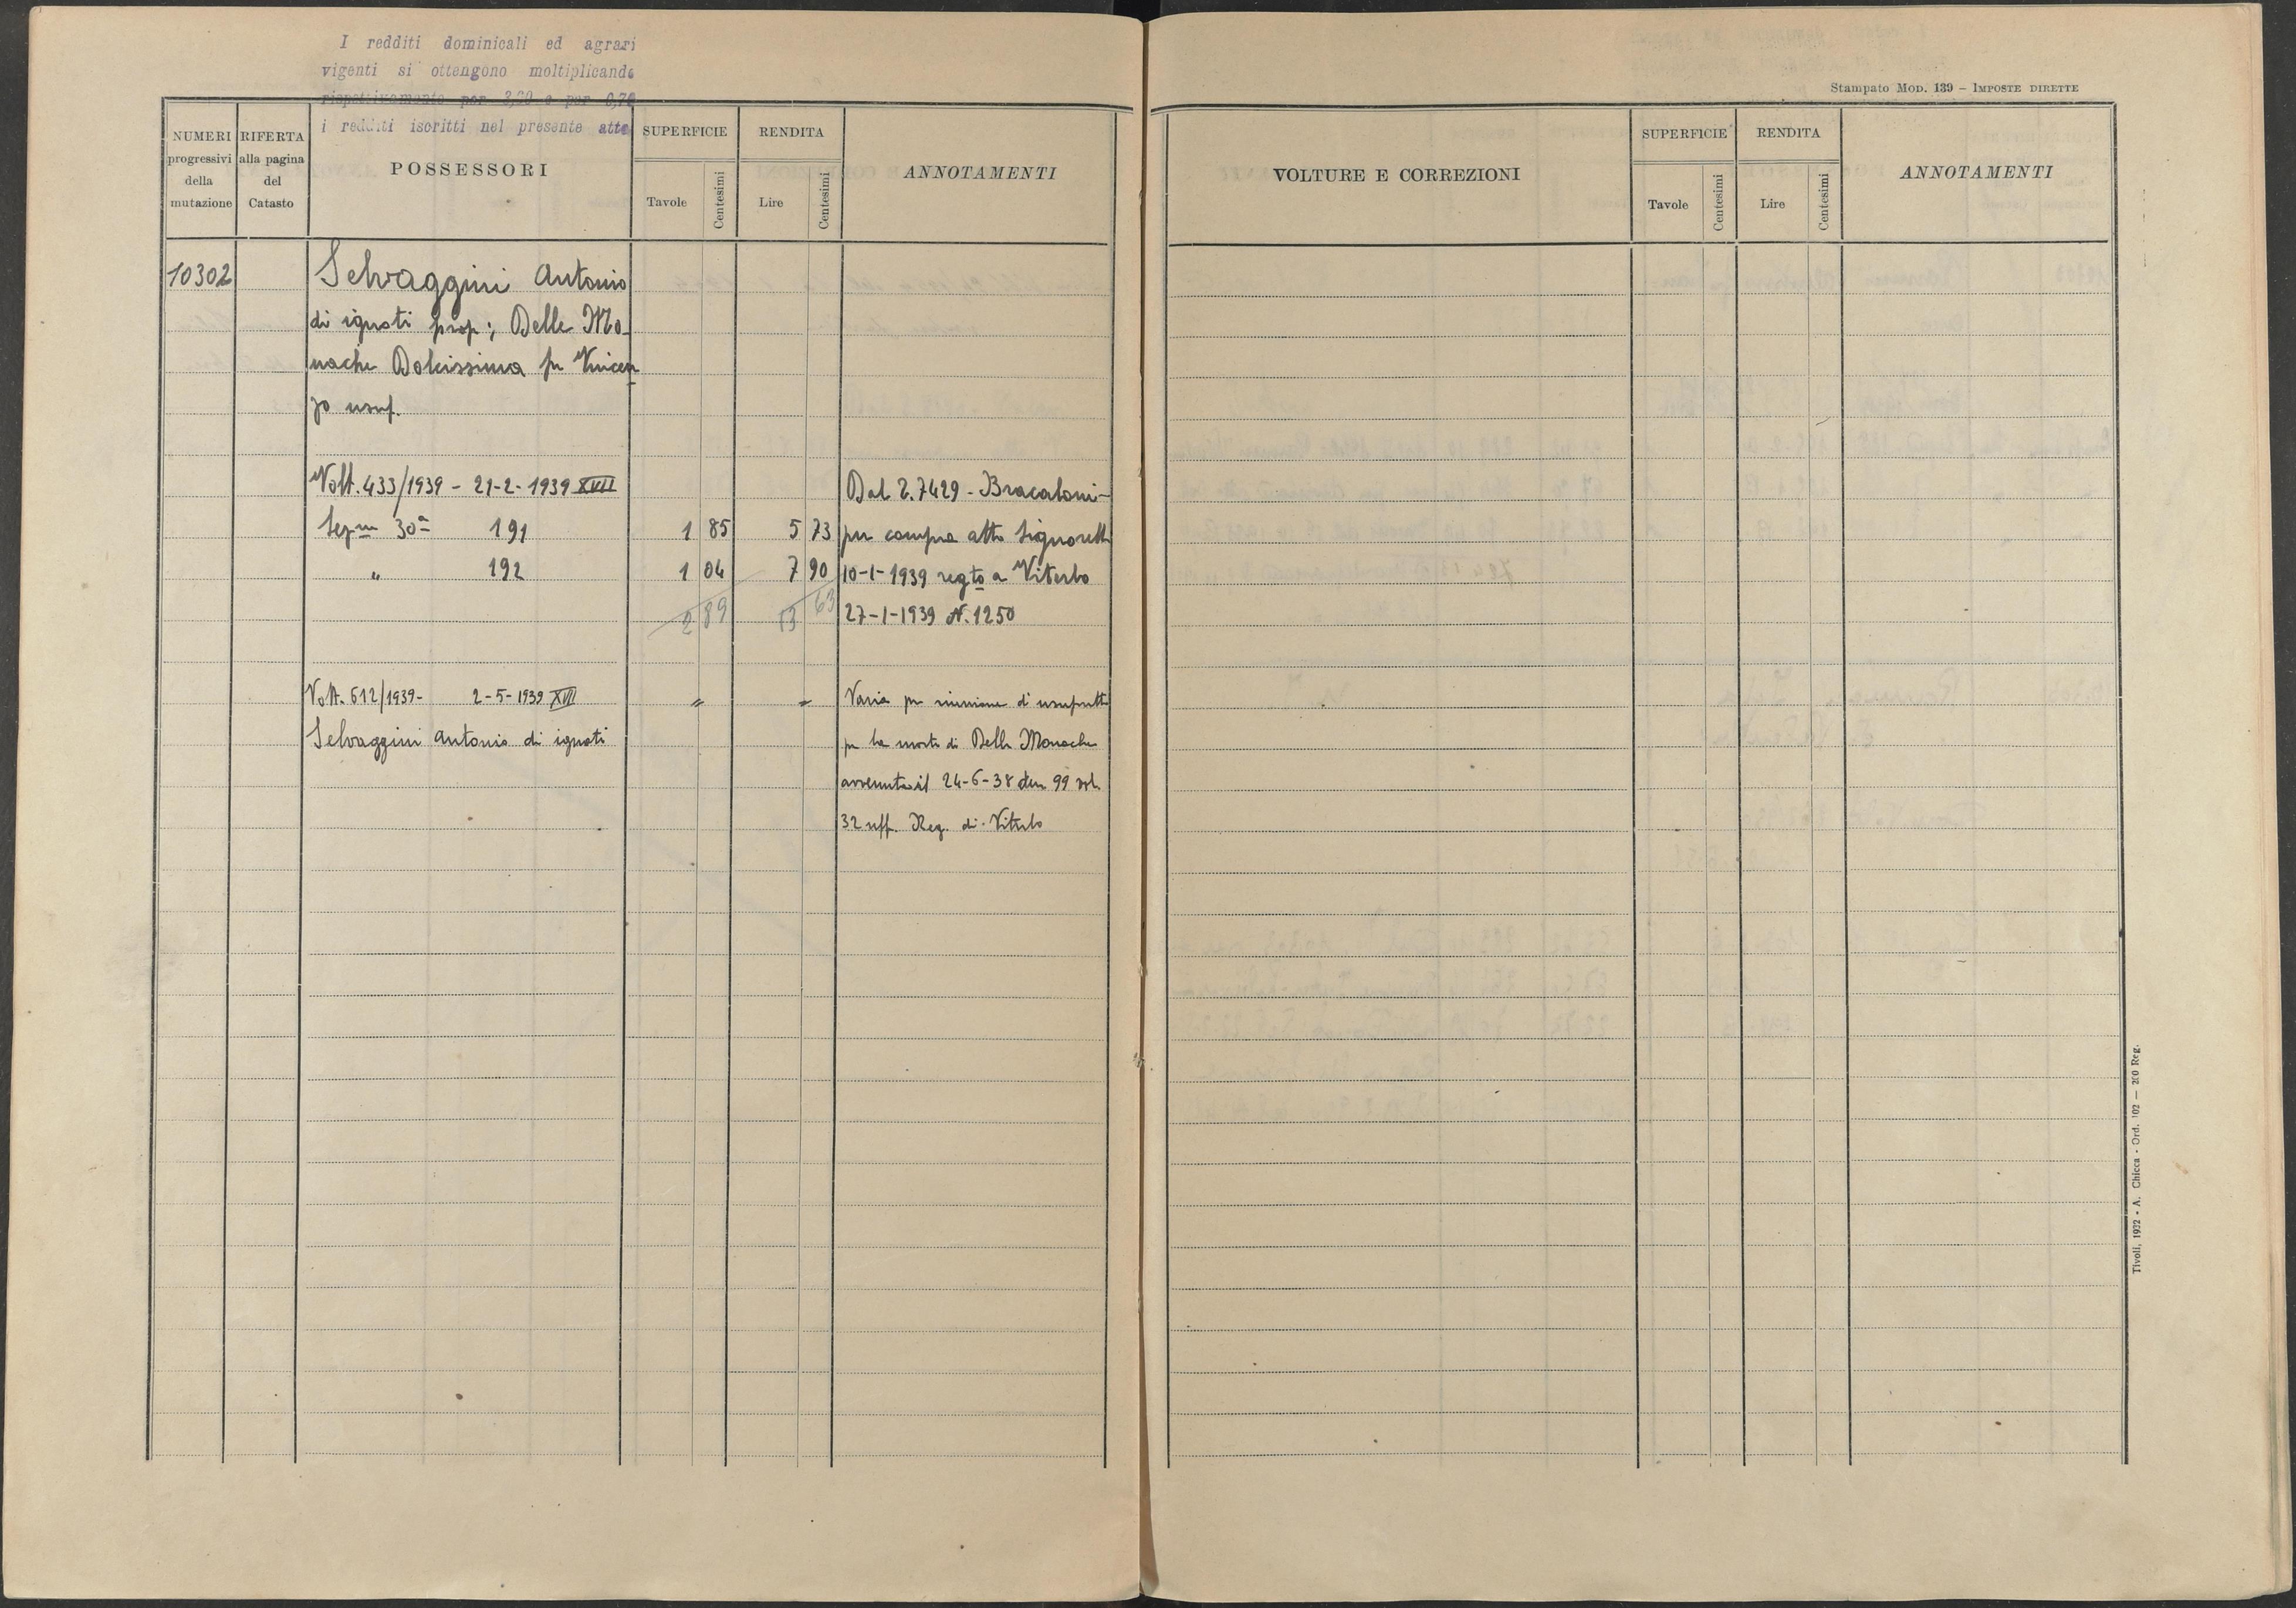 I redditi dominicali ed agrari
vigenti si ottengono moltiplicando
rispettivamente per 3,20 e per 0,70
i redditi iscritti nel presente atto
Stampato Mod. 139 – Imposte dirette
NUMERI progressivi della mutazione
RIFERTA alla pagina del Catasto
POSSESSORI
SUPERFICIE
Tavole
Centesimi
RENDITA
Lire
Centesimi
ANNOTAMENTI
VOLTURE E CORREZIONI
SUPERFICIE
Tavole
Centesimi
RENDITA
Lire
Centesimi
ANNOTAMENTI
10302 Selvaggini Antonio
di ignoti prop; Delle Mo-
nache Dolcissima fu Vincen
zo usuf.
Volt. 433/1939 - 21-2-1939 XVII Dal 2.7429 - Bracaloni -
Sezne 30a 191 1 85 5 73 per compra atto Signorelli
" 192 1 04 7 90 10-1-1939 regto a Viterbo
2 89 13 63 27-1-1939 N. 1250
Volt. 612/1939 - 2-5-1939 XVII " " Varia per riunione di usufrutto
Selvaggini Antonio di ignoti per la morte di Delle Monache
avvenuta il 24-6-38 den. 99 vol.
32 uff. Reg. di Viterbo
Tivoli, 1932 - A. Chicca - Ord. 102 — 200 Reg.